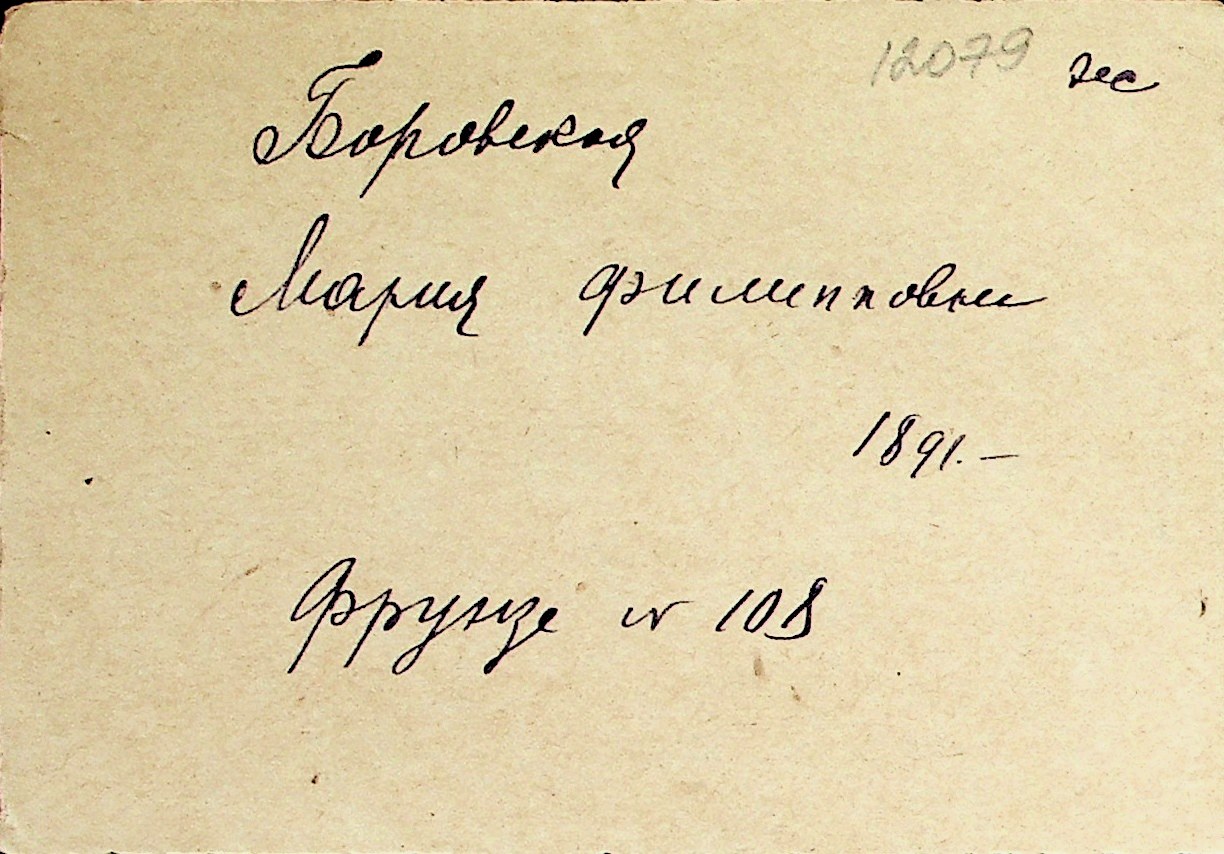 12079
Боровская
Мария Филипповна
1891.-
Фрунзе № 108